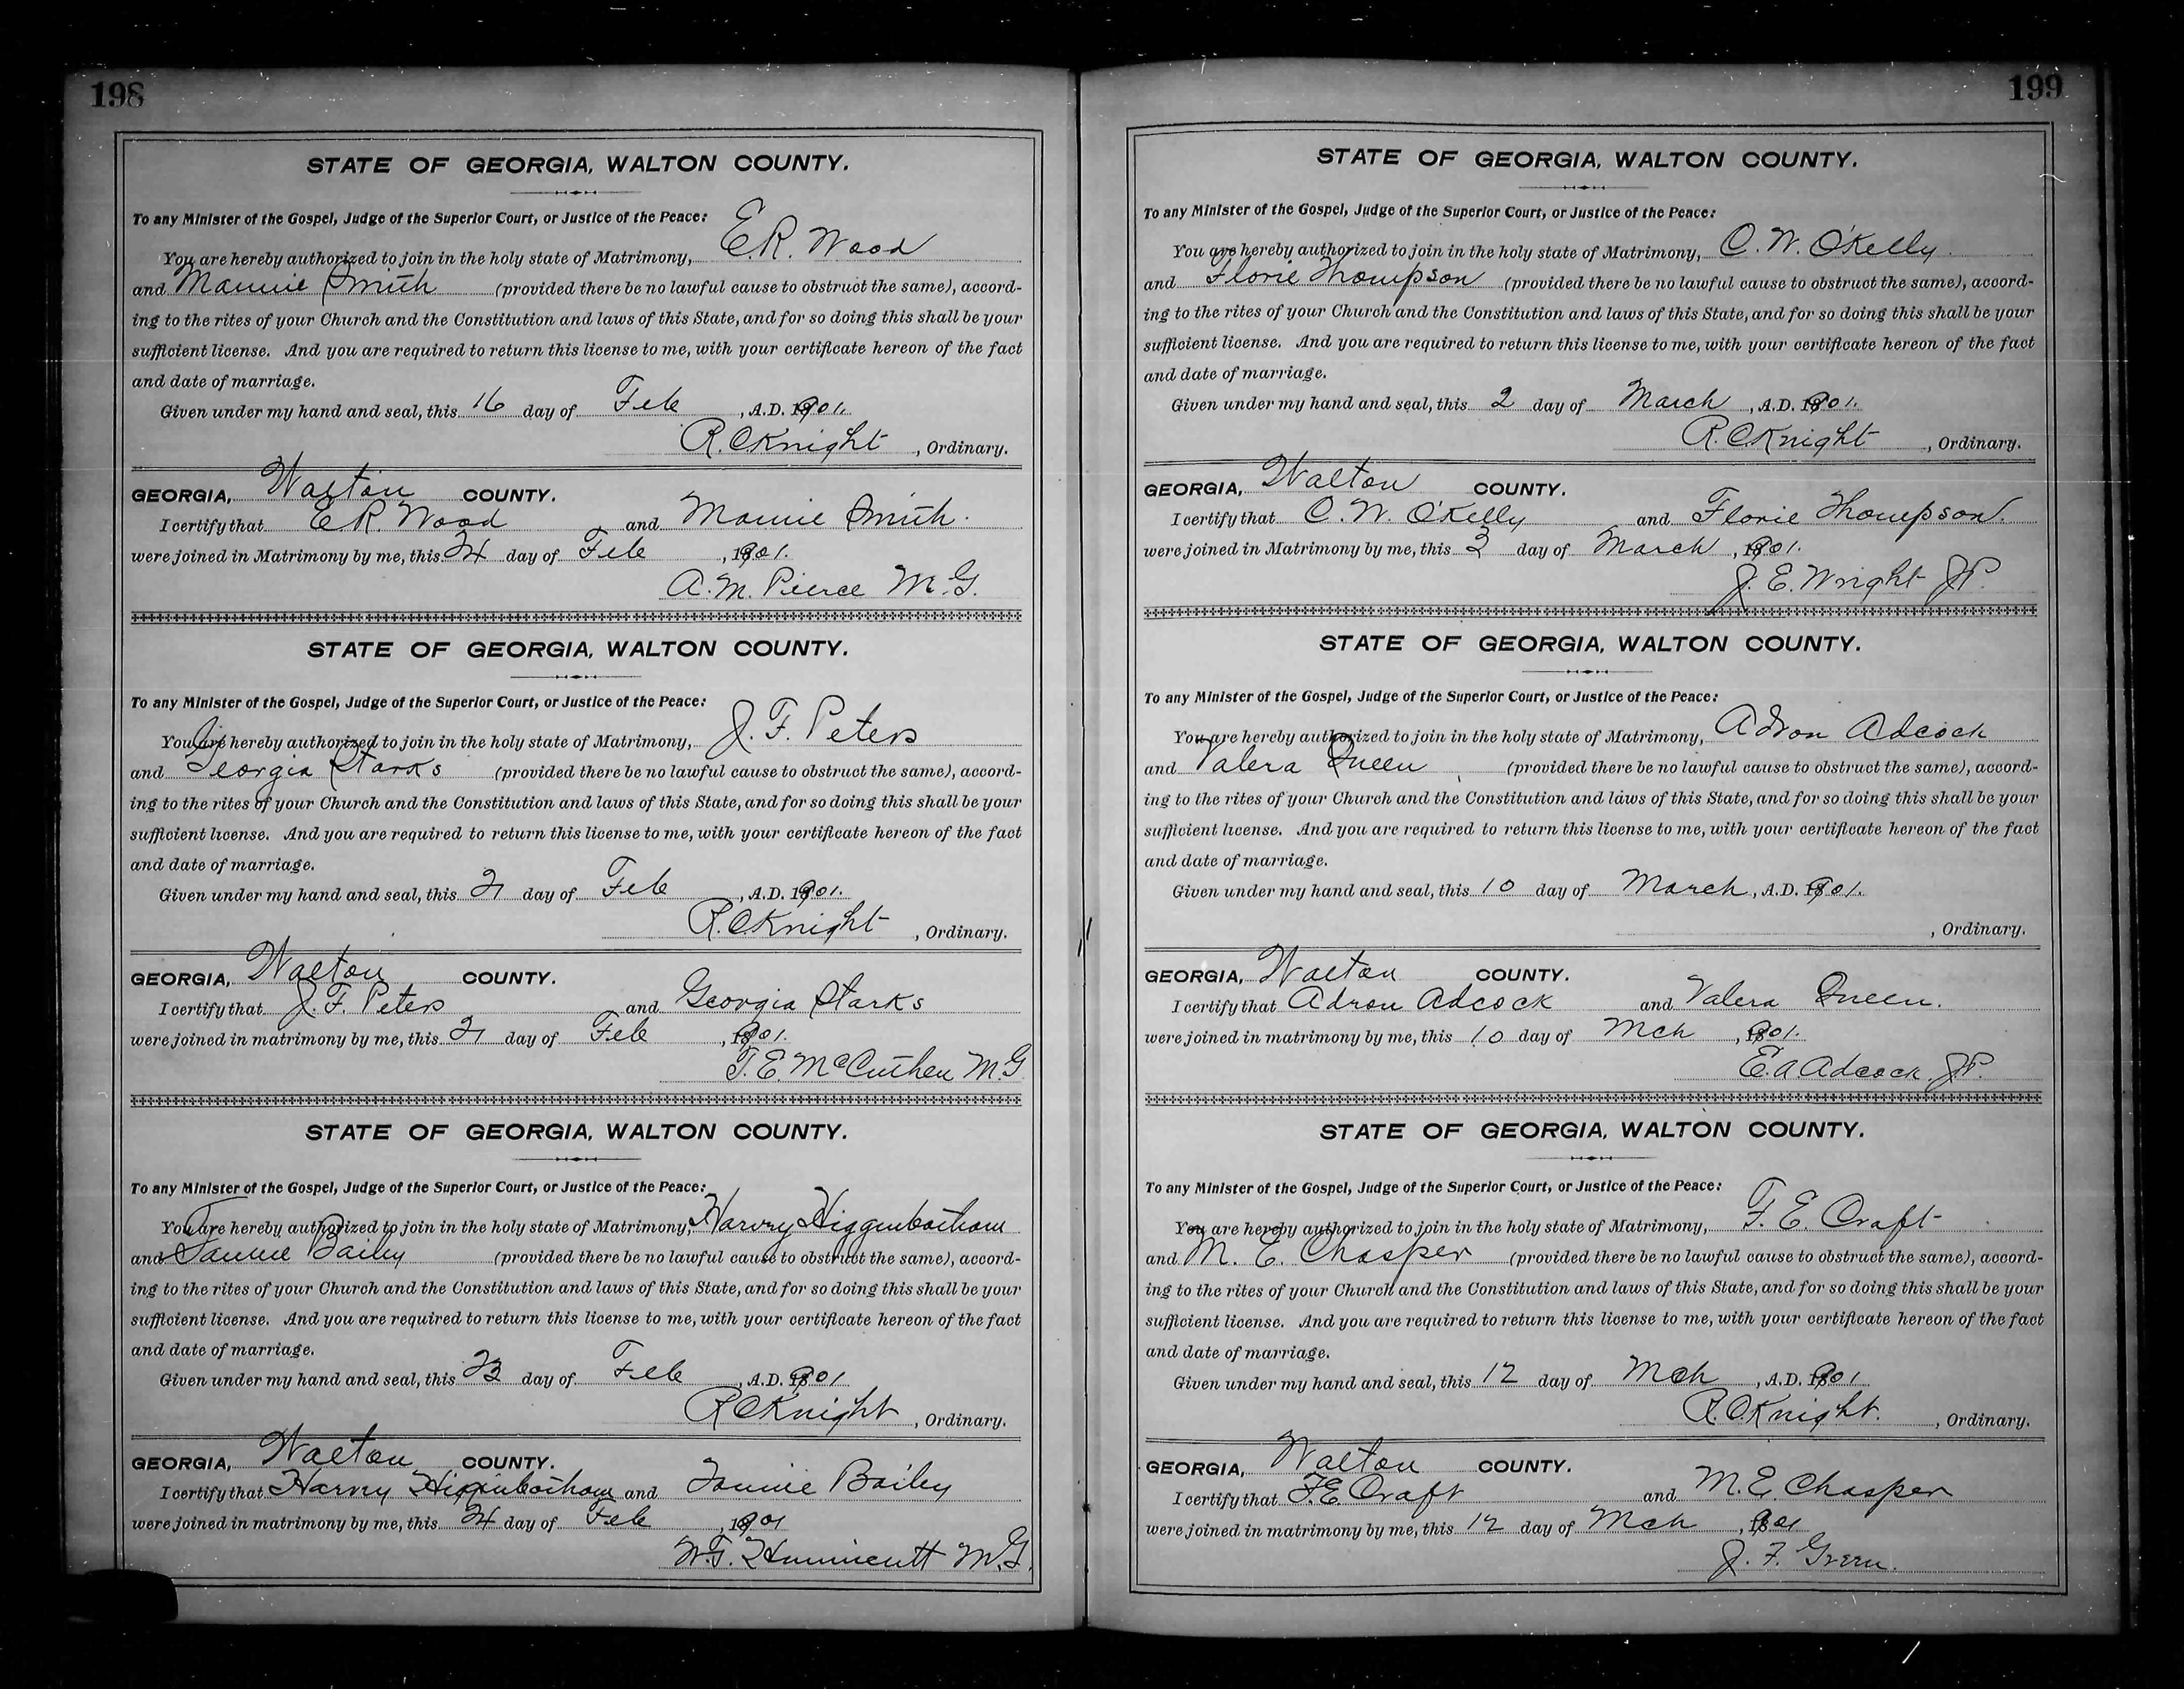 198
STATE OF GEORGIA, WALTON COUNTY.
To any Minister of the Gospel, Judge of the Superior Court, or Justice of the Peace:
You are hereby authorized to join in the holy state of Matrimony, E. R. Wood
and Mannie Smith (provided there be no lawful cause to obstruct the same), accord-
ing to the rites of your Church and the Constitution and laws of this State, and for so doing this shall be your
sufficient license. And you are required to return this license to me, with your certificate hereon of the fact
and date of marriage.
Given under my hand and seal, this 16 day of Feb, A.D. 1901.
R. C. Knight, Ordinary.
GEORGIA, Walton COUNTY.
I certify that E. R. Wood and Mannie Smith.
were joined in Matrimony by me, this 24 day of Feb, 1901.
A. M. Pierce M. G.
STATE OF GEORGIA, WALTON COUNTY.
To any Minister of the Gospel, Judge of the Superior Court, or Justice of the Peace:
You are hereby authorized to join in the holy state of Matrimony, J. F. Peters
and Georgia Starks (provided there be no lawful cause to obstruct the same), accord-
ing to the rites of your Church and the Constitution and laws of this State, and for so doing this shall be your
sufficient license. And you are required to return this license to me, with your certificate hereon of the fact
and date of marriage.
Given under my hand and seal, this 21 day of Feb, A.D. 1901.
R. C. Knight, Ordinary.
GEORGIA, Walton COUNTY.
I certify that J. F. Peters and Georgia Starks
were joined in matrimony by me, this 21 day of Feb, 1901.
T. E. McCuthen M. G
STATE OF GEORGIA, WALTON COUNTY.
To any Minister of the Gospel, Judge of the Superior Court, or Justice of the Peace:
You are hereby authorized to join in the holy state of Matrimony, Harvey Higginbotham
and Fannie Bailey (provided there be no lawful cause to obstruct the same), accord-
ing to the rites of your Church and the Constitution and laws of this State, and for so doing this shall be your
sufficient license. And you are required to return this license to me, with your certificate hereon of the fact
and date of marriage.
Given under my hand and seal, this 23 day of Feb, A.D. 1901
R C Knight, Ordinary.
GEORGIA, Walton COUNTY.
I certify that Harvey Higginbotham and Fannie Bailey
were joined in matrimony by me, this 24 day of Feb, 1901
W. T. Hunnicutt M. G.
199
STATE OF GEORGIA, WALTON COUNTY.
To any Minister of the Gospel, Judge of the Superior Court, or Justice of the Peace:
You are hereby authorized to join in the holy state of Matrimony, C. W. O'Kelly
and Florie Thompson (provided there be no lawful cause to obstruct the same), accord-
ing to the rites of your Church and the Constitution and laws of this State, and for so doing this shall be your
sufficient license. And you are required to return this license to me, with your certificate hereon of the fact
and date of marriage.
Given under my hand and seal, this 2 day of March, A.D. 1901.
R. C Knight, Ordinary.
GEORGIA, Walton COUNTY.
I certify that C. W. O'Kelly and Florie Thompson.
were joined in Matrimony by me, this 3 day of March, 1901.
J. E. Wright J.P.
STATE OF GEORGIA, WALTON COUNTY.
To any Minister of the Gospel, Judge of the Superior Court, or Justice of the Peace:
You are hereby authorized to join in the holy state of Matrimony, Adron Adcock
and Valera Queen (provided there be no lawful cause to obstruct the same), accord-
ing to the rites of your Church and the Constitution and laws of this State, and for so doing this shall be your
sufficient license. And you are required to return this license to me, with your certificate hereon of the fact
and date of marriage.
Given under my hand and seal, this 10 day of March, A.D. 1901.
, Ordinary.
GEORGIA, Walton COUNTY.
I certify that Adron Adcock and Valera Queen.
were joined in matrimony by me, this 10 day of Mch, 1901.
E. A. Adcock. J.P.
STATE OF GEORGIA, WALTON COUNTY.
To any Minister of the Gospel, Judge of the Superior Court, or Justice of the Peace:
You are hereby authorized to join in the holy state of Matrimony, F. E. Craft
and M. E. Chasper (provided there be no lawful cause to obstruct the same), accord-
ing to the rites of your Church and the Constitution and laws of this State, and for so doing this shall be your
sufficient license. And you are required to return this license to me, with your certificate hereon of the fact
and date of marriage.
Given under my hand and seal, this 12 day of Mch, A.D. 1901
R. C. Knight., Ordinary.
GEORGIA, Walton COUNTY.
I certify that F. E. Craft and M. E. Chasper
were joined in matrimony by me, this 12 day of Mch, 1901
J. F. Green.